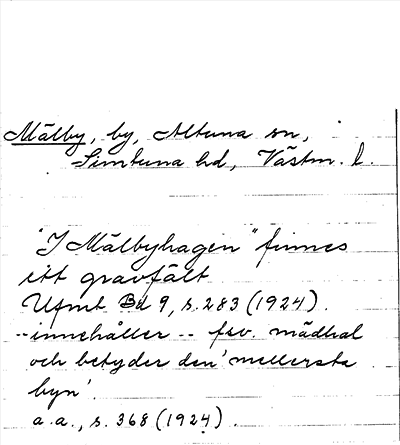 Mälby, by, Altuna sn,
Simtuna hd, Västm. l.
"I Mälbyhagen" finnes
ett gravfält
Ufmt Bd 9, s. 283 (1924).
-- innehåller -- fsv. mädhal
och betyder den 'mellersta
byn'.
a.a., s. 368 (1924).